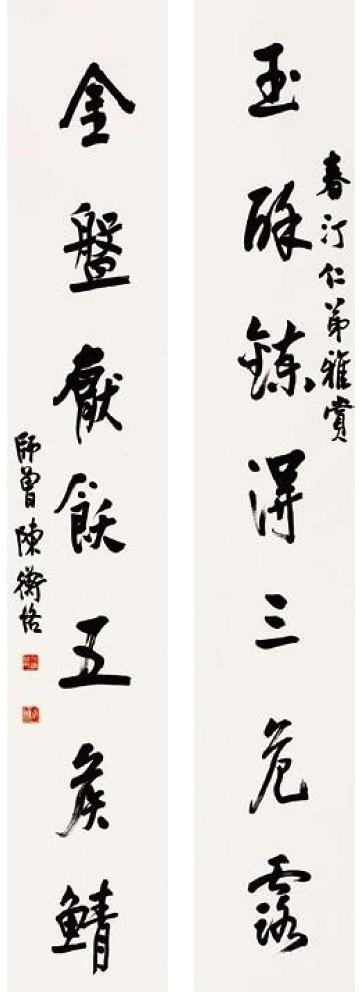 玉酥鍊得三危露
春汀仁弟雅賞
金盤厭飫五侯鯖
師曾陳衡恪